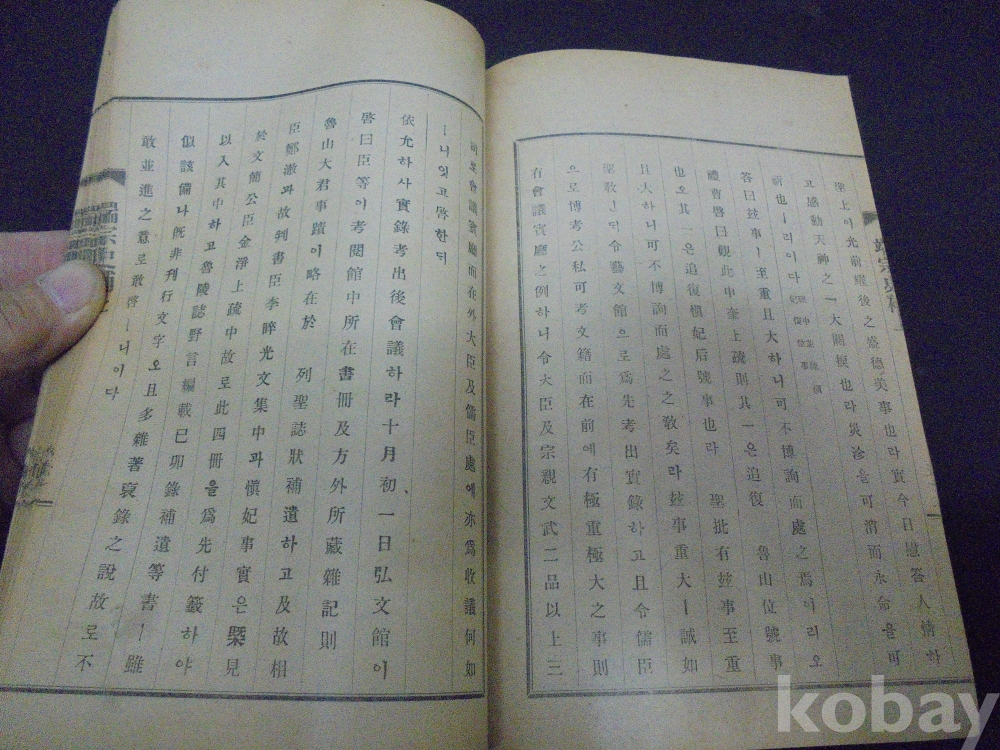 聖上이光前耀後之盛德美事也라實今日慰答人情하
고感動天神之一大關棙也라災沴을可消而永命을可
祈也ㅣ리이다
答曰玆事ㅣ至重且大하니可不博詢而處之焉이리오
禮曹啓曰觀此申奎上疏則其一은追復 魯山位號事
也오其一은追復愼妃后號事也라 聖批有玆事至重
且大하니可不博詢而處之之敎矣라玆事重大ㅣ誠如
聖敎ㄴ뒤令藝文館으로爲先考出實錄하고且令儒臣
으로博考公私可考文籍而在前에有極重極大之事則
有會議賓廳之例하니令大臣及宗親文武二品以上三
司로會議賓廳而在外大臣及儒臣處에亦爲收議何如
ㅣ니잇고啓한뒤
依允하사實錄考出後會議하라十月初一日弘文館이
啓曰臣等이考閱館中所在書冊及方外所藏雜記則
魯山大君事蹟이略在於 列聖誌狀補遺하고及故相
臣鄭澈과故判書臣李睟光文集中과愼妃事實은槩見
於文簡公臣金淨上疏中故로此四冊을爲先付籤하야
以入其中하고魯陵誌野言編載己卯錄補遺等書ㅣ雖
似該備나旣非刊行文字오且多雜著裒錄之說故로不
敢並進之意로敢啓ㅣ니이다
端宗史
kobay